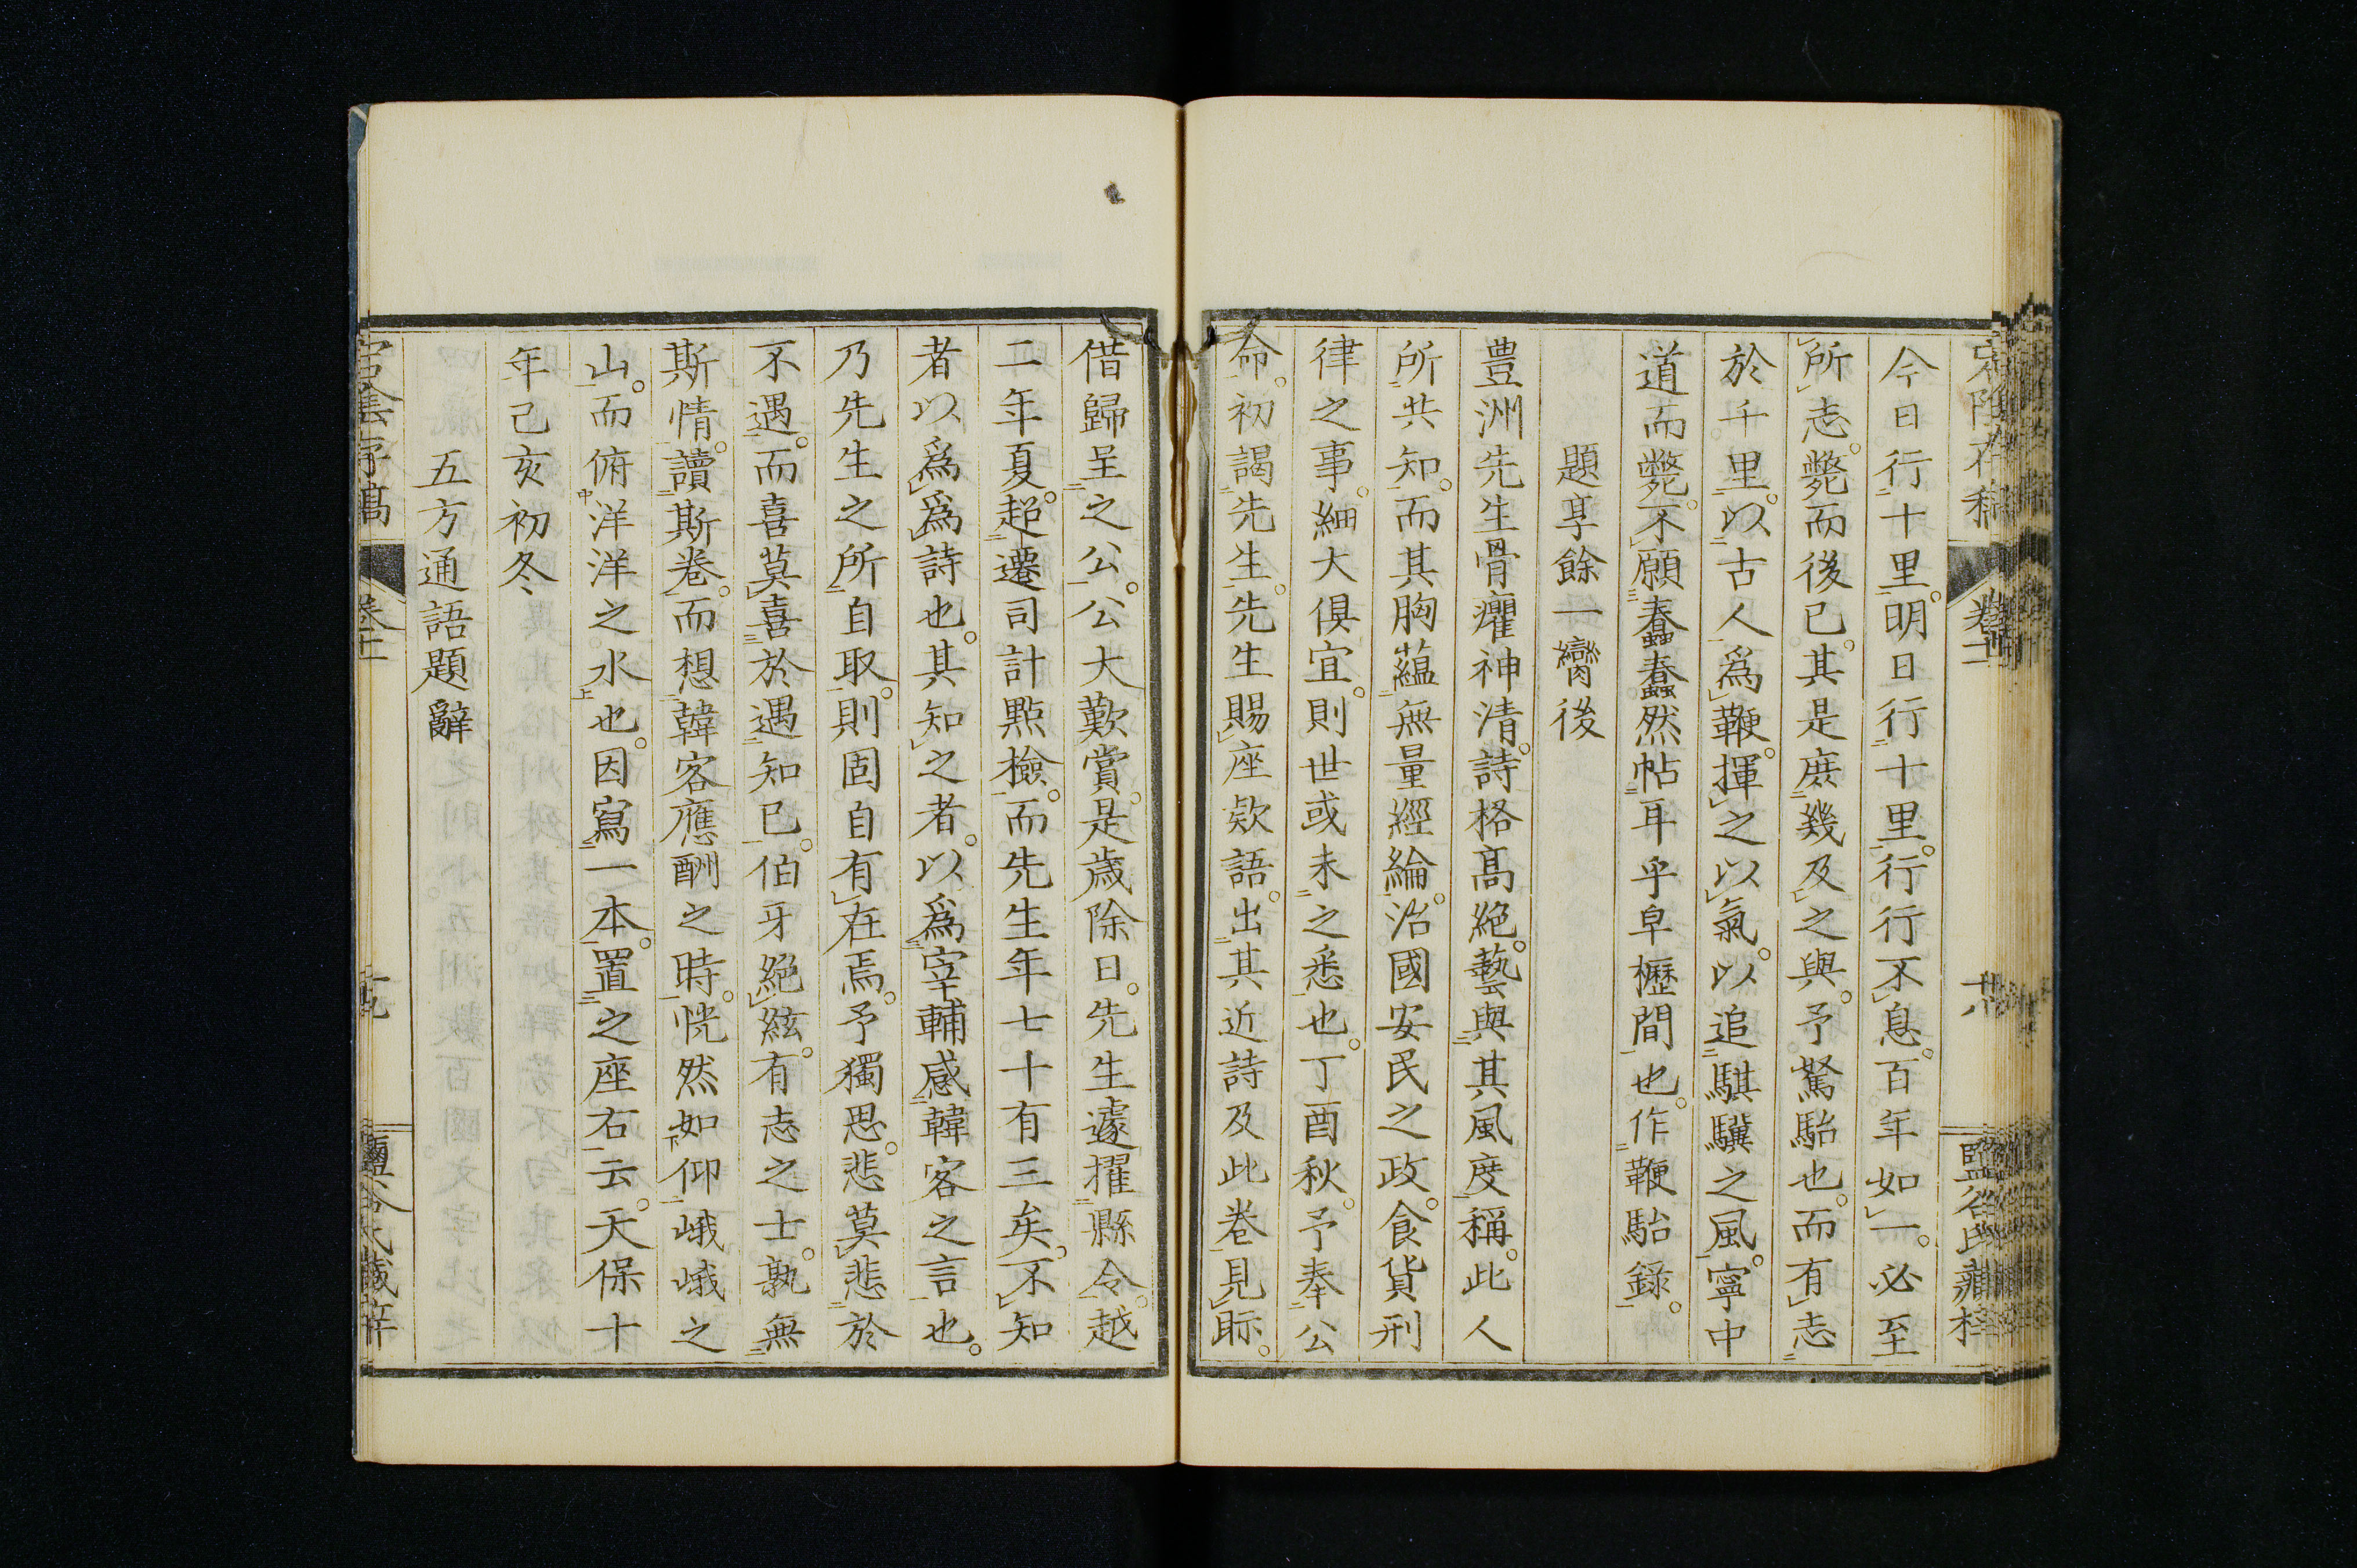 今日行十里。明日行十里。行行不息。百年如一。必至
所志。斃而後已。其是庶幾及之與。予駑駘也。而有志
於千里。以古人爲鞭。揮之以氣。以追騏驥之風。寧中
道而斃。不願蠢蠢然帖耳乎皁櫪間也。作鞭駘錄。
題享餘一臠後
豊洲先生骨癯神清。詩格髙絶。藝與其風度稱。此人
所共知。而其胸蘊無量經綸。治國安民之政。食貨刑
律之事。細大俱宜。則世或未之悉也。丁酉秋。予奉公
命。初謁先生。先生賜座欵語。出其近詩及此卷見眎。
借歸呈之公。公大歎賞。是歳除日。先生遽擢縣令。越
二年夏。超遷司計點檢。而先生年七十有三矣。不知
者以爲爲詩也。其知之者。以爲宰輔感韓客之言也。
乃先生之所自取。則固自有在焉。予獨思。悲莫悲於
不遇。而喜莫喜於遇知已。伯牙絶絃。有志之士。孰無
斯情。讀斯卷。而想韓客應酬之時。恍然如仰峨峨之
山。而俯洋洋之水也。因寫一本。置之座右云。天保十
年己亥初冬
五方通語題辭